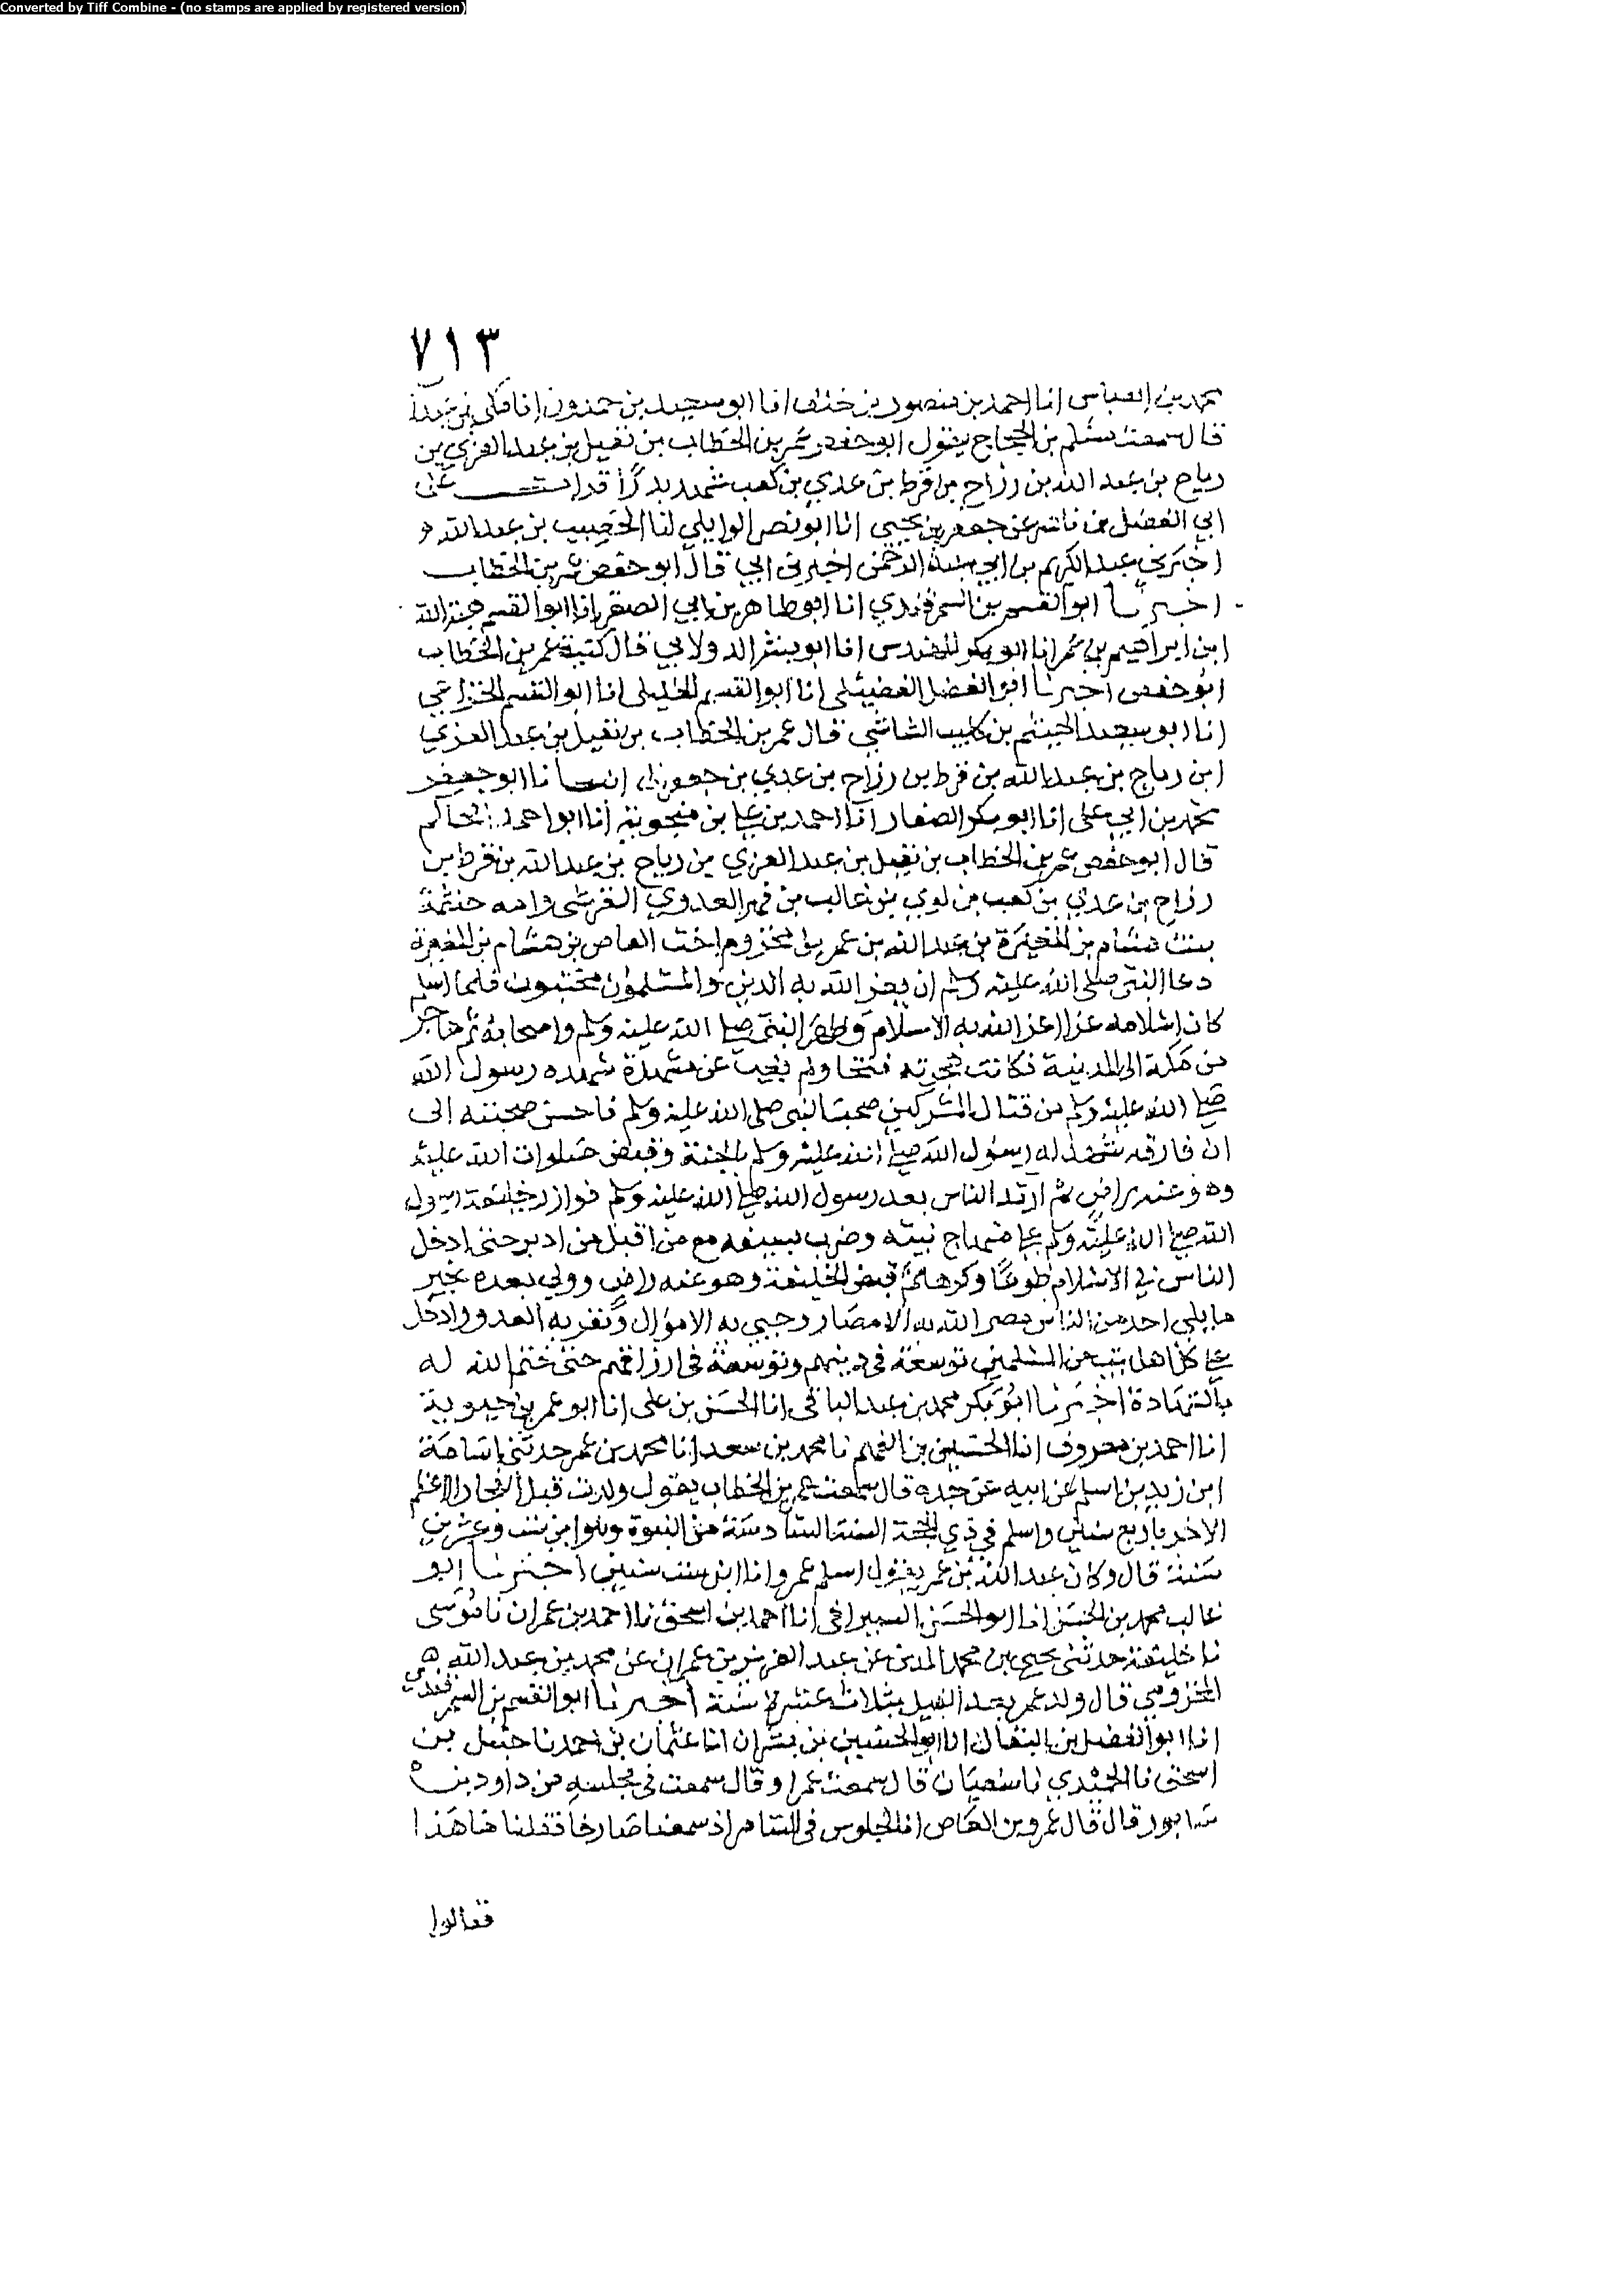 Converted by Tiff Combine - (no stamps are applied by registered version)
٧١٣
محمد بن العباس انا احمد بن منصور بن خلف انا ابو سعيد بن حمدون انا مكي بن عبدان
قال سمعت مسلم بن الحجاج يقول ابو حفص عمر بن الخطاب بن نفيل بن عبد العزي بن
رياح بن عبد الله بن رزاح بن قرط بن عدي بن كعب شهد بدرًا قرات على
ابي الفضل بن ناصر عن جعفر بن يحيى انا ابو نصر الوايلي انا الخصيب بن عبد الله
اخبرني عبد الكريم بن ابي عبد الرحمن اخبرني ابي قال ابو حفص عمر بن الخطاب
اخبرنا ابو القسم بن السمرقندي انا ابو طاهر بن ابي الصقر انا ابو القسم هبة الله
ابن ابراهيم بن عمر انا ابو بكر المهندس انا ابو بشر الدولابي قال كنية عمر بن الخطاب
ابو حفص اخبرنا ابو الفضل الفضيلي انا ابو القسم الخليلي انا ابو القسم الخزاعي
انا ابو سعيد الهيثم بن كليب الشاشي قال عمر بن الخطاب بن نفيل بن عبد العزي
ابن رياح بن عبد الله بن قرط بن رزاح بن عدي بن انبانا ابو جعفر
محمد بن ابي علي انا ابو بكر الصفار انا احمد بن علي بن منجويه انا ابو احمد الحاكم
قال ابو حفص عمر بن الخطاب بن نفيل بن عبد العزي بن رياح بن عبد الله بن قرط بن
رزاح بن عدي بن كعب بن لوي بن غالب بن فهر العدوي القرشي وامه حنتمة
بنت هشام بن المغيرة بن عبد الله بن عمر بن مخزوم اخت العاص بن هشام بن المغيرة
دعا النبي صلى الله عليه وسلم ان يعز الله به الدين والمسلمون مختبون فلما اسلم
كان اسلامه عزا اعز الله به الاسلام وظهر النبي صلى الله عليه وسلم واصحابه ثم هاجر
من مكة الى المدينة فكانت هجرته فتحا ولم يغب عن مشهد شهده رسول الله
صلى الله عليه وسلم من قتال المشركين صحب النبي صلى الله عليه وسلم فاحسن صحبته الى
ان فارقه شهد له رسول الله صلى الله عليه وسلم بالجنة وقبض صلوات الله عليه
وهو عنه راض ثم ارتد الناس بعد رسول الله صلى الله عليه وسلم فوازر خليفة رسول
الله صلى الله عليه وسلم على منهاج نبيه وضرب بسيفه مع من اقبل من ادبر حتى ادخل
الناس في الاسلام طوعًا وكرها ثم قبض الخليفة وهو عنه راض وولي بعده بخير
ما يلي احد من الناس مصر الله به الامصار وجبى به الاموال ونفى به العدو وادخل
على كل اهل بيت من المسلمين توسعة في دينهم وتوسعة في ارزاقهم حتى ختم الله له
بالشهادة اخبرنا ابو بكر محمد بن عبد الباقي انا الحسن بن علي انا ابو عمر بن حيويه
انا احمد بن معروف انا الحسين بن الفهم نا محمد بن سعد انا محمد بن عمر حدثني اسامة
ابن زيد بن اسلم عن ابيه عن جده قال سمعت عمر بن الخطاب يقول ولدت قبل الفجار الاعظم
الاخر باربع سنين واسلم في ذي الحجة السنة السادسة من النبوة وهو ابن ست وعشرين
سنة قال وكان عبد الله بن عمر يقول اسلم عمر وانا ابن ست سنين اخبرنا ابو
غالب محمد بن الحسن انا ابو الحسن السيرافي انا احمد بن اسحق نا احمد بن عمران نا موسى
نا خليفة حدثني يحيى بن محمد المدني عن عبد العزيز بن عمران عن محمد بن عبد الله
المخزومي قال ولد عمر بعد الفيل بثلاث عشرة سنة اخبرنا ابو القسم بن السمرقندي
انا ابو الفضل بن البقال انا ابو الحسين بن بشران انا عثمان بن احمد نا حنبل بن
اسحق نا الحميدي نا سفيان قال سمعت عمرا وقال سمعت في مجلسه من داود بن
شابور قال قال عمرو بن العاص انا لجلوس في السامر اذ سمعنا صارخا فقلنا ما هذا
فقالوا